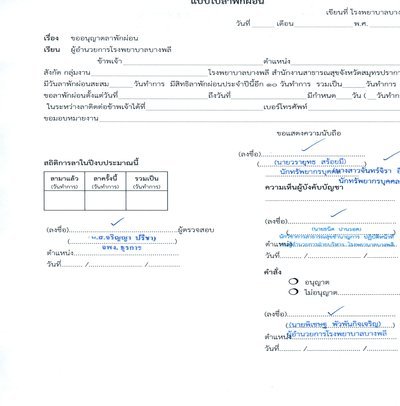 แบบใบลาพักผ่อน
เขียนที่ โรงพยาบาลบาง
วันที่ เดือน พ.ศ.
เรื่อง ขออนุญาตลาพักผ่อน
เรียน ผู้อำนวยการโรงพยาบาลบางพลี
ข้าพเจ้า ตำแหน่ง
สังกัด กลุ่มงาน โรงพยาบาลบางพลี สำนักงานสาธารณสุขจังหวัดสมุทรปรากา
มีวันลาพักผ่อนสะสม วันทำการ มีสิทธิลาพักผ่อนประจำปีนี้อีก ๑๐ วันทำการ รวมเป็น วันทำการ
ขอลาพักผ่อนตั้งแต่วันที่ ถึงวันที่ มีกำหนด วัน ( วันทำการ
ในระหว่างลาติดต่อข้าพเจ้าได้ที่ เบอร์โทรศัพท์
ขอมอบหมายงาน
ขอแสดงความนับถือ
(ลงชื่อ)
(นายวรายุทธ สร้อยมี)
นักทรัพยากรบุคคล
(นางสาวจันทร์จิรา
นักทรัพยากรบุคคล
สถิติการลาในปีงบประมาณนี้
ลามาแล้ว (วันทำการ) ลาครั้งนี้ (วันทำการ) รวมเป็น (วันทำการ)
ความเห็นผู้บังคับบัญชา
(ลงชื่อ) ผู้ตรวจสอบ
น.ส.จริญญา ปรีชา
จพง.ธุรการ
ตำแหน่ง
วันที่ / /
(ลงชื่อ)
ตำแหน่ง
วันที่ / /
คำสั่ง
อนุญาต
ไม่อนุญาต
(ลงชื่อ)
ตำแหน่ง ผู้อำนวยการโรงพยาบาลบางพลี
วันที่ / /